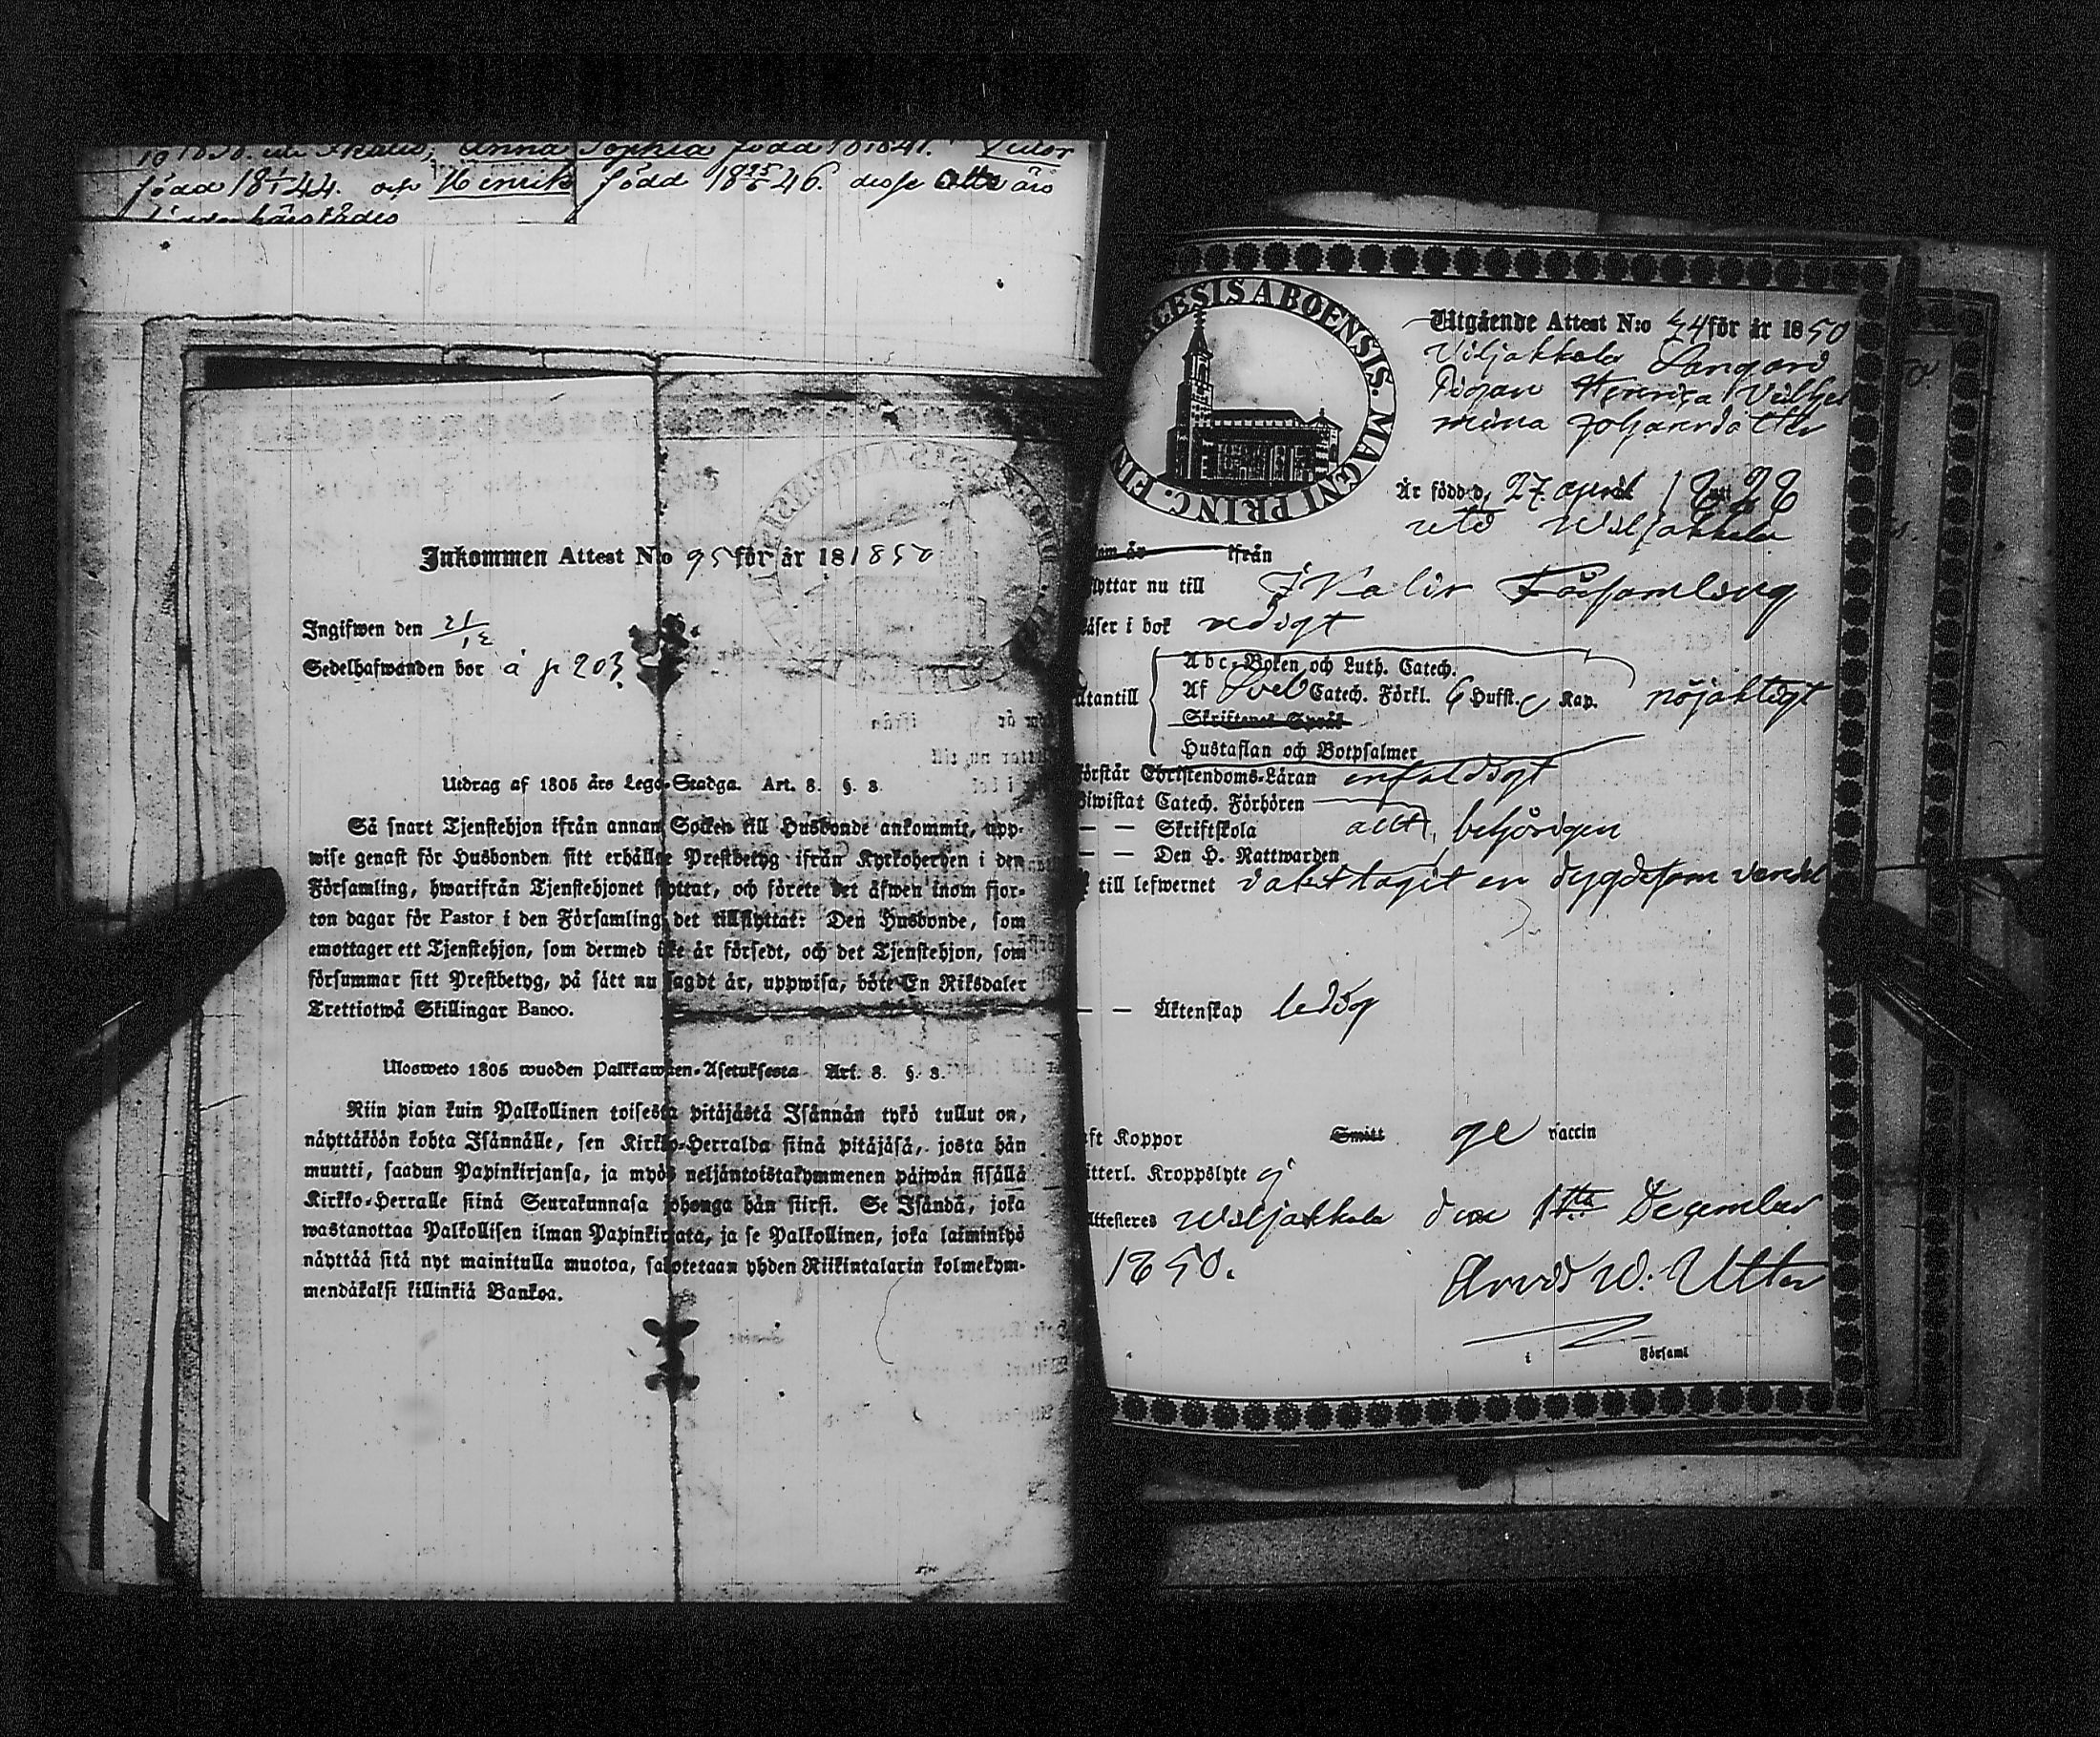 född 18 1/1 44. och Henrik född 18 25/6 46. desse Alla äro
härstädes
Inkommen Attest N:o 95 för år 181850
Ingifwen den 21/12
Sedelhafwanden bor å p 203
Utdrag af 1805 års Lego-Stadga. Art. 8. §. 8.
Så snart Tjenstehjon ifrån annan Socken till Husbonde ankommit, upp-
wise genast för Husbonden sitt erhållne Prestbetyg ifrån Kyrkoherden i den
Församling, hwarifrån Tjenstehjonet flyttat, och förete det äfwen inom fjor-
ton dagar för Pastor i den Församling det tillflyttat: Den Husbonde, som
emottager ett Tjenstehjon, som dermed icke är försedt, och det Tjenstehjon, som
försummar sitt Prestbetyg, på sätt nu sagdt är, uppwisa, böte En Riksdaler
Trettiotwå Skillingar Banco.
Ulosweto 1805 wuoden Palkkawäen-Asetuksesta Art. 8. §. 8.
Niin pian kuin Palkollinen toisesta pitäjästä Isännän tykö tullut on,
näyttäköön kohta Isännälle, sen Kirkko-Herralda siinä pitäjäsä, josta hän
muutti, saadun Papinkirjansa, ja myös neljäntoistakymmenen päiwän sisällä
Kirkko-Herralle siinä Seurakunnasa johonga hän siirsi. Se Isändä, joka
wastanottaa Palkollisen ilman Papinkirjata, ja se Palkollinen, joka laiminlyö
näyttää sitä nyt mainitulla muotoa, sakotetaan yhden Riikintalarin kolmekym-
mendäkaksi killinkiä Bankoa.
CESIS ABOENSIS. MAGNI PRINC. FIN
Utgående Attest N:o 54 för år 1850
Viljakkala Langard
Pigan Henrica Vilhel
mina Johansdotter
Är född d. 27 april 1828
uti Wiljakkala
om är ifrån
flyttar nu till IKalis Församling
läser i bok redigt
Abc-Boken och Luth. Catech.
utantill Af Sveb Catech. Förkl. 6 Hufst. Kap. nöjaktigt
Skriftenes Språk
Hustaflan och Botpsalmer
förstår Christendoms-Läran enfaldigt
biwistat Catech. Förhören
— — Skriftskola allt, behörigen
— — Den H. Nattwarden
till lefwernet iakttagit en dygdesam vandel
— — Äktenskap ledig
aft Koppor Smitt ge vaccin
itterl. Kroppslyte ej
Attesteres Wiljakkala den 1sta December
1850.
Arvid W. Utter
i Församl